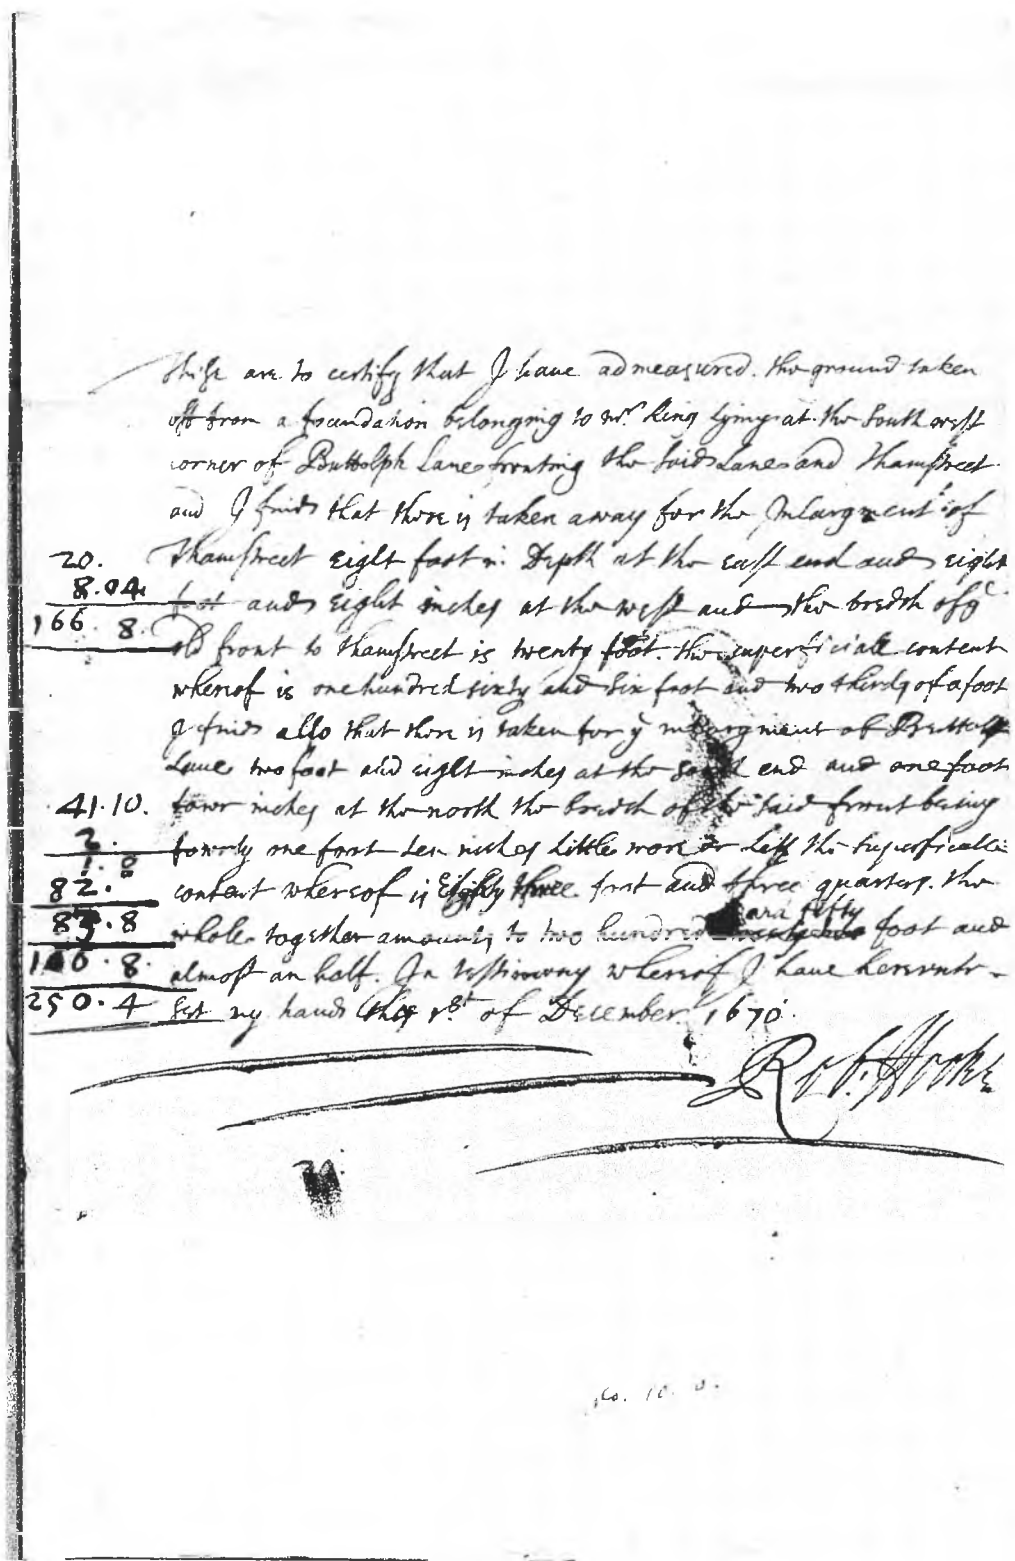 These are to certify that I haue admeasured the ground taken
off from a foundation belonging to mr. King lying at the South west
corner of Buttolph Lane fronting the said Lane and Thamstreet
and I find that there is taken away for the Inlargment of
Thamstreet eight foot in Depth at the east end and eight
20.
8.04
foot and eight inches at the west and the bredth of ye
166. 8.
old front to thamstreet is twenty foot. the superficiall content
whereof is one hundred sixty and six foot and two thirds of a foot
I find also that there is taken for ye inlargment of Buttolph
Lane two foot and eight inches at the south end and one foot
41.10.
fower inches at the north the bredth of the said front being
2.
fowrty one foot ten inches little more or less the superficiall
82.
content whereof is Eighty three foot and three quarters. the
83.8
and fifty
whole together amounts to two hundred foot and
166.8.
almost an half. In testimony whereof I haue herevnto
250.4
set my hand this 1st of December 1670.
Rob. Hooke